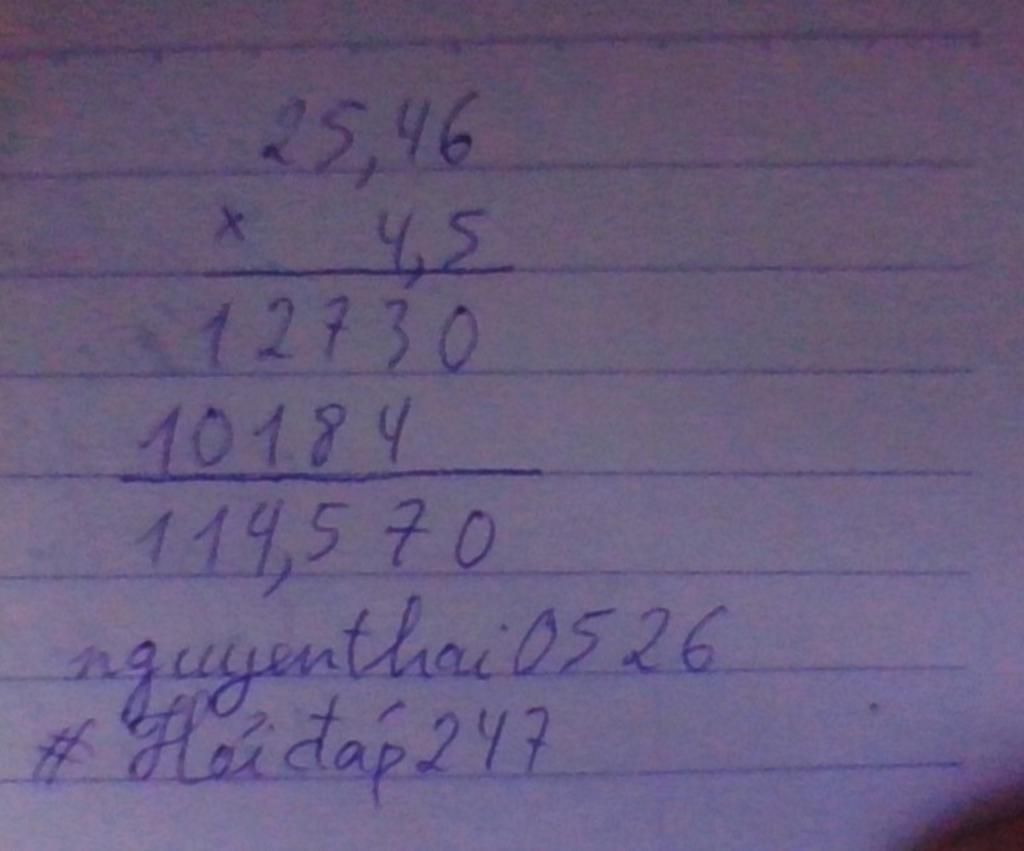 25,46
× 4,5
12730
10184
114,570
nguyenthai0526
# Hỏi đáp 247